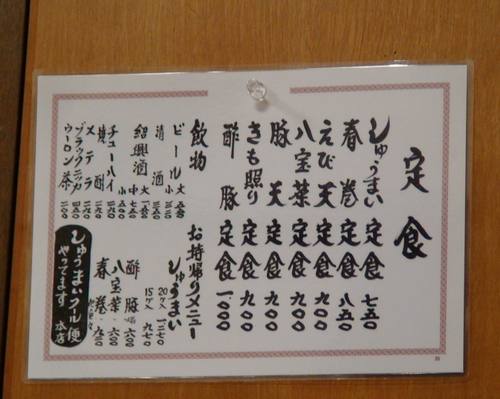 定食
しゅうまい定食 七五〇
春巻定食 八五〇
えび天定食 九〇〇
八宝菜定食 九〇〇
豚天定食 九〇〇
きも照り定食 九〇〇
酢豚定食 一、〇〇〇
飲物
ビール 大
小
清酒
紹興酒 大
中
小
チューハイ
焼酎
ステラ
ブラックニッカ
ウーロン茶
お持帰りメニュー
しゅうまい
20ケ入 一二七〇
15ケ入 九七〇
酢豚 六〇〇
八宝菜・六〇〇
春巻・九二〇
しゅうまいクール便
やってます 本店